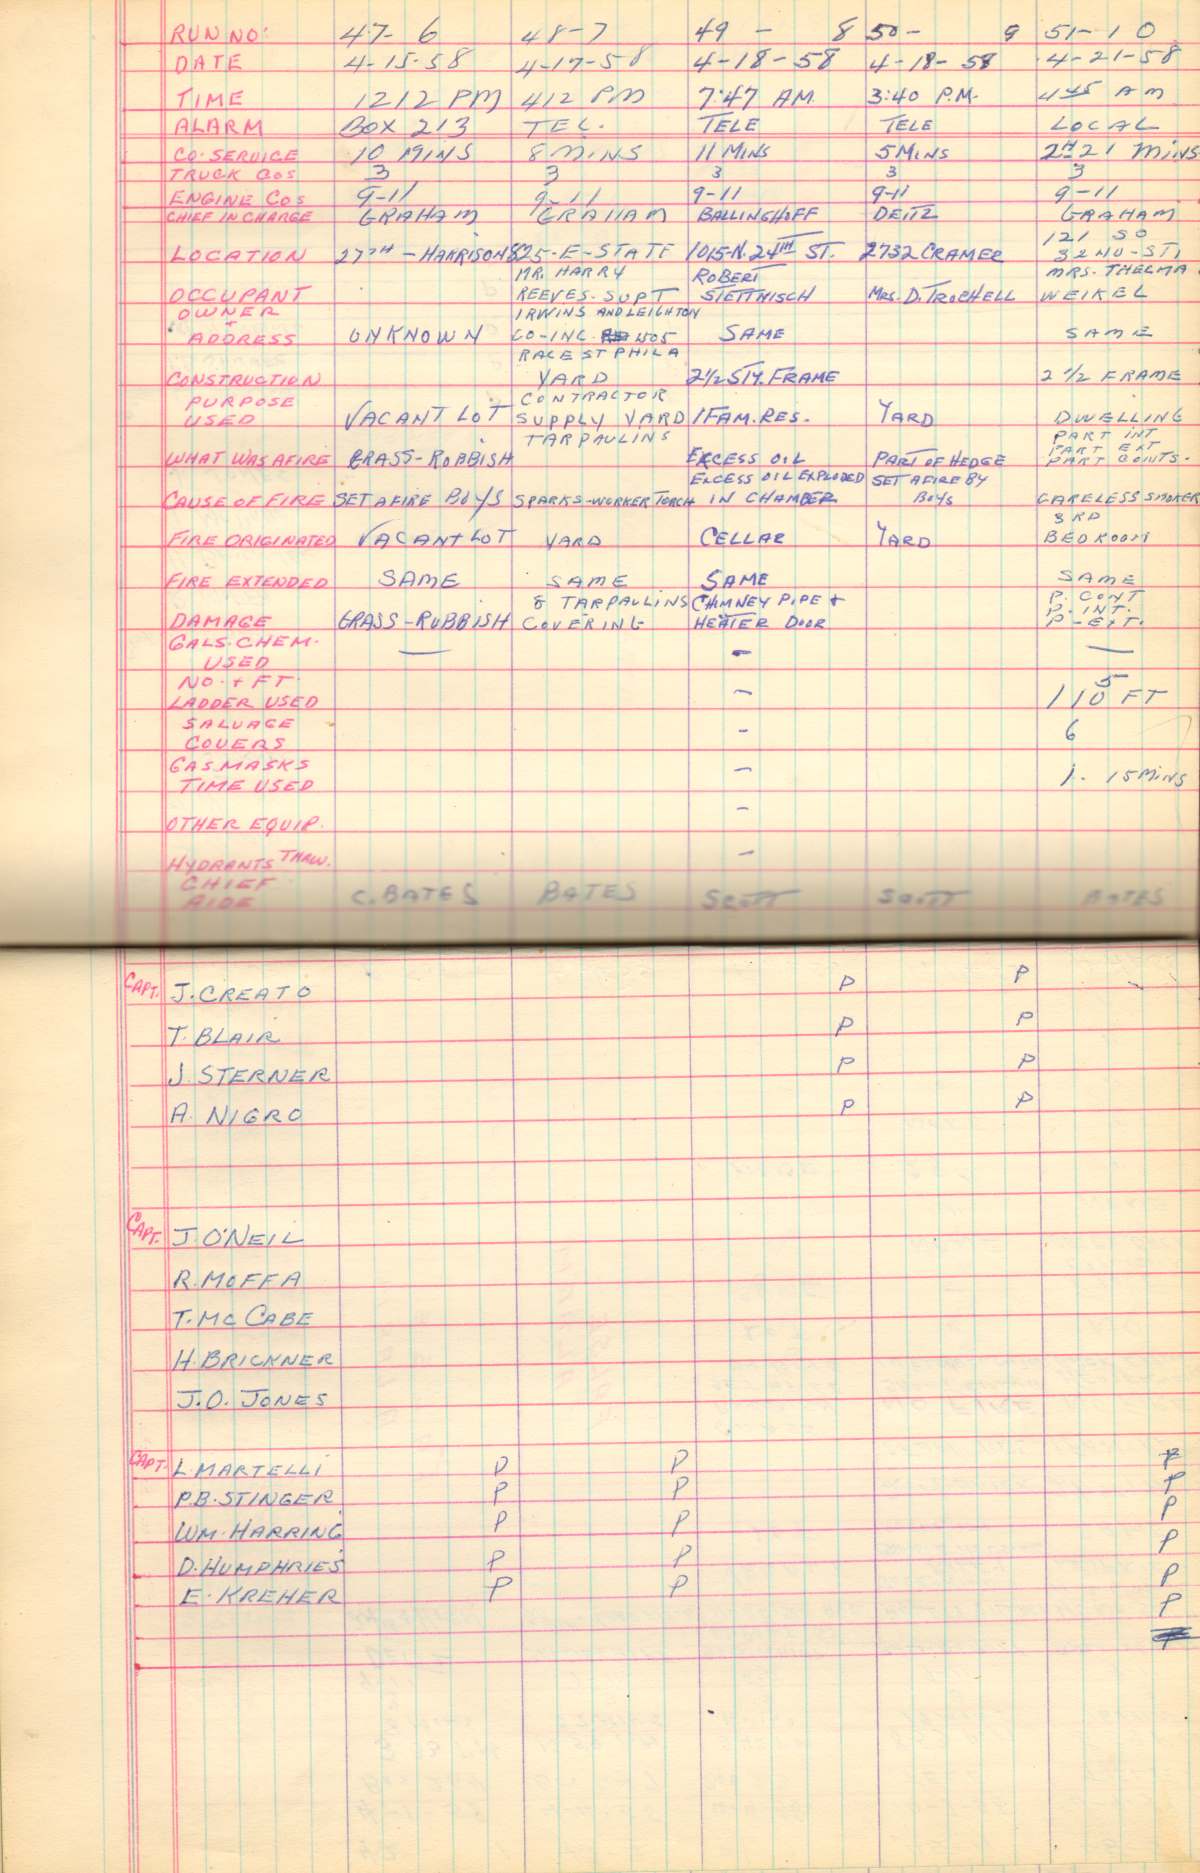 RUN NO: 47- 6 48-7 49 - 8 50- 9 51-10
DATE 4-15-58 4-17-58 4-18-58 4-18-58 4-21-58
TIME 1212 PM 412 PM 7:47 AM. 3:40 P.M. 445 AM
ALARM BOX 213 TEL. TELE TELE LOCAL
CO. SERVICE 10 MINS 8 MINS 11 MINS 5 MINS 2H 21 MINS
TRUCK COS 3 3 3 3 3
ENGINE COS 9-11 9-11 9-11 9-11 9-11
CHIEF IN CHARGE GRAHAM GRAHAM BALLINGHOFF DEITZ GRAHAM
121 SO
LOCATION 27TH - HARRISON 825-E-STATE 1015-N. 24TH ST. 2732 CRAMER 32ND-ST.
MR. HARRY ROBERT MRS. THELMA
OCCUPANT REEVES. SUPT STETTNISCH MRS. D. TROCHELL WEIKEL
OWNER IRWINS AND LEIGHTON
+ ADDRESS UNKNOWN CO-INC. 1505 SAME SAME
RACE ST PHILA
CONSTRUCTION YARD 2½ STY. FRAME 2 1/2 FRAME
PURPOSE CONTRACTOR
USED VACANT LOT SUPPLY YARD 1 FAM. RES. YARD DWELLING
TARPAULINS PART INT
PART EXT
WHAT WAS AFIRE GRASS-RUBBISH EXCESS OIL PART OF HEDGE PART CONTS.
EXCESS OIL EXPLODED SET AFIRE BY
CAUSE OF FIRE SET AFIRE BOYS SPARKS-WORKER TORCH IN CHAMBER BOYS CARELESS SMOKER
3RD
FIRE ORIGINATED VACANT LOT YARD CELLAR YARD BEDROOM
FIRE EXTENDED SAME SAME SAME SAME
8 TARPAULINS CHIMNEY PIPE + P. CONT
P. INT.
DAMAGE GRASS-RUBBISH COVERING HEATER DOOR P-EXT.
GALS. CHEM. — - —
USED
NO. + FT.
LADDER USED - 5 110 FT
SALVAGE
COVERS - 6
GAS MASKS
TIME USED - 1. 15 MINS
OTHER EQUIP. -
HYDRANTS THAW. -
CHIEF
AIDE C. BATES BATES SCOTT SCOTT BATES
CAPT. J. CREATO P P
T. BLAIR P P
J. STERNER P P
A. NIGRO P P
CAPT. J. O'NEIL
R. MOFFA
T. MC CABE
H. BRICKNER
J. O. JONES
CAPT. L. MARTELLI P P P
P.B. STINGER P P P
WM. HARRING P P P
D. HUMPHRIES P P P
E. KREHER P P P
P